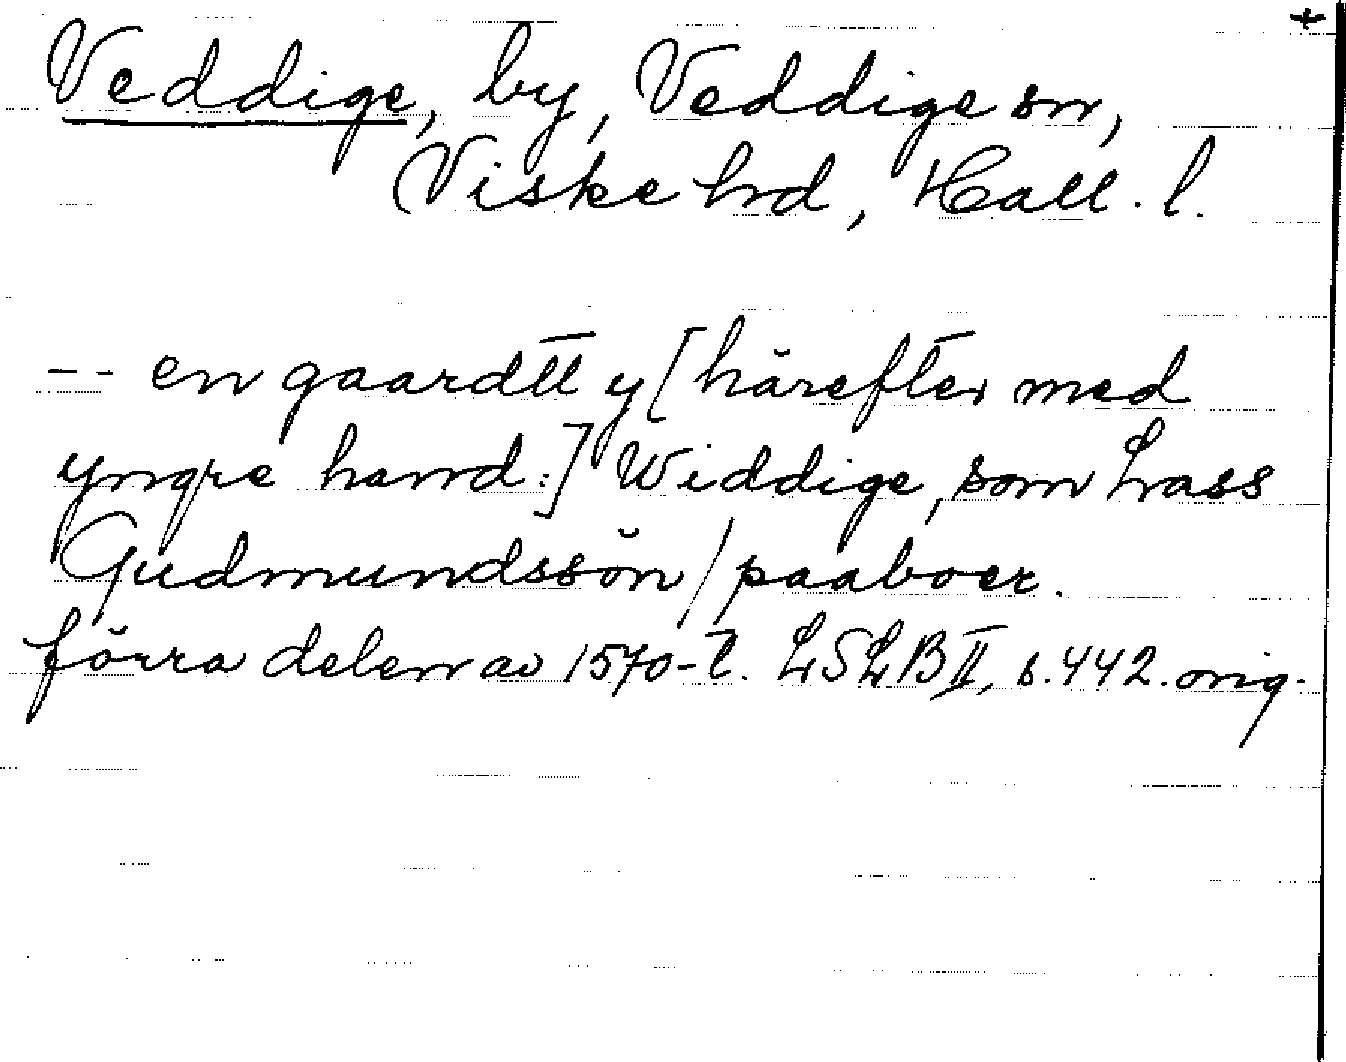 +
Veddige, by, Veddige sn,
Viske hd, Hall. l.
-- en gaardtt y [härefter med
yngre hand:] Widdige, som Lass
Gudmundssön / paaboer.
förra delen av 1570-t. LSLB II, s. 442. orig.